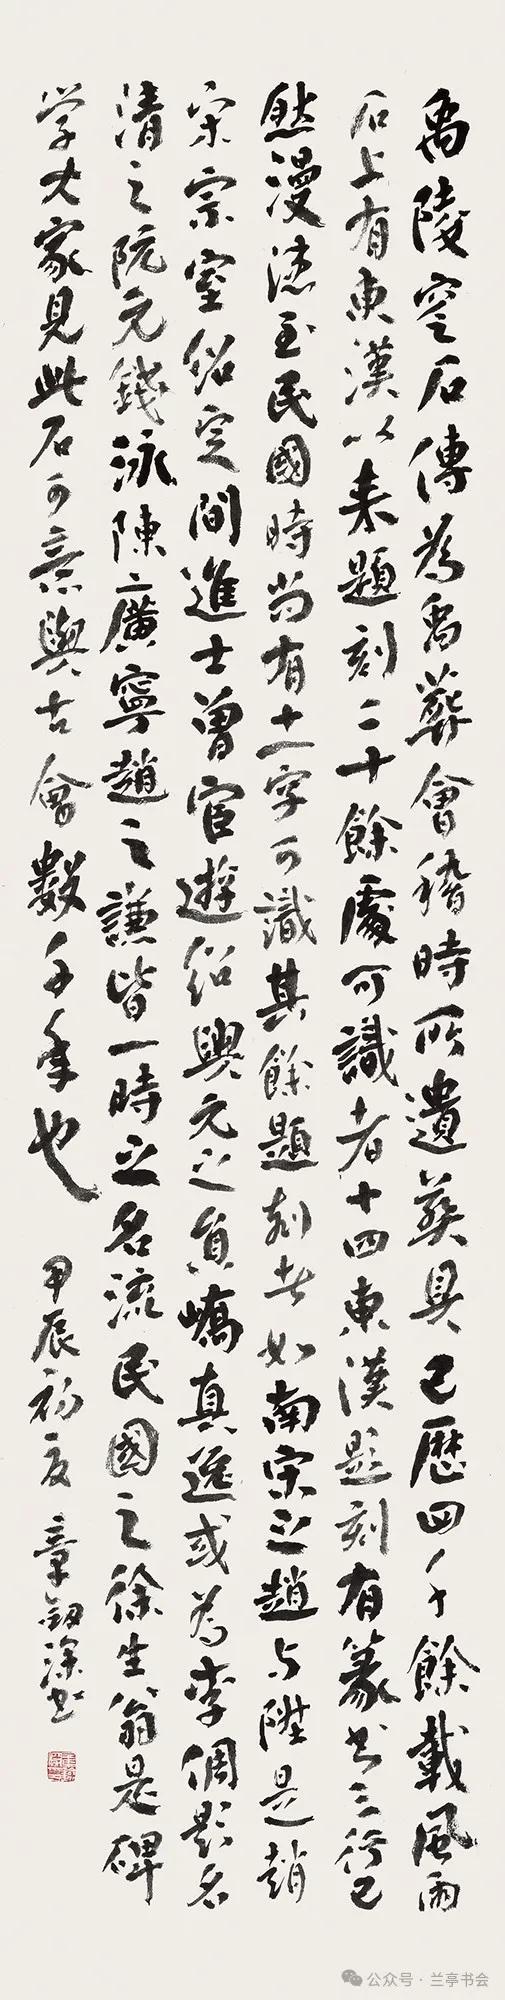 禹陵窆石傳為禹葬會稽時所遺葬具已歷四千餘載風雨
石上有東漢以來題刻二十餘處可識者十四東漢題刻有篆書三行已
然漫漶至民國時尚有十一字可識其餘題刻者如南宋之趙与陞是趙
宋宗室紹定間進士曾宦遊紹興元之員嶠真逸或為李倜題名
清之阮元錢泳陳廣寧趙之謙皆一時之名流民國之徐生翁是碑
学大家見此石可意與古會數千年也
甲辰初夏 章劍深书
公众号·兰亭书会